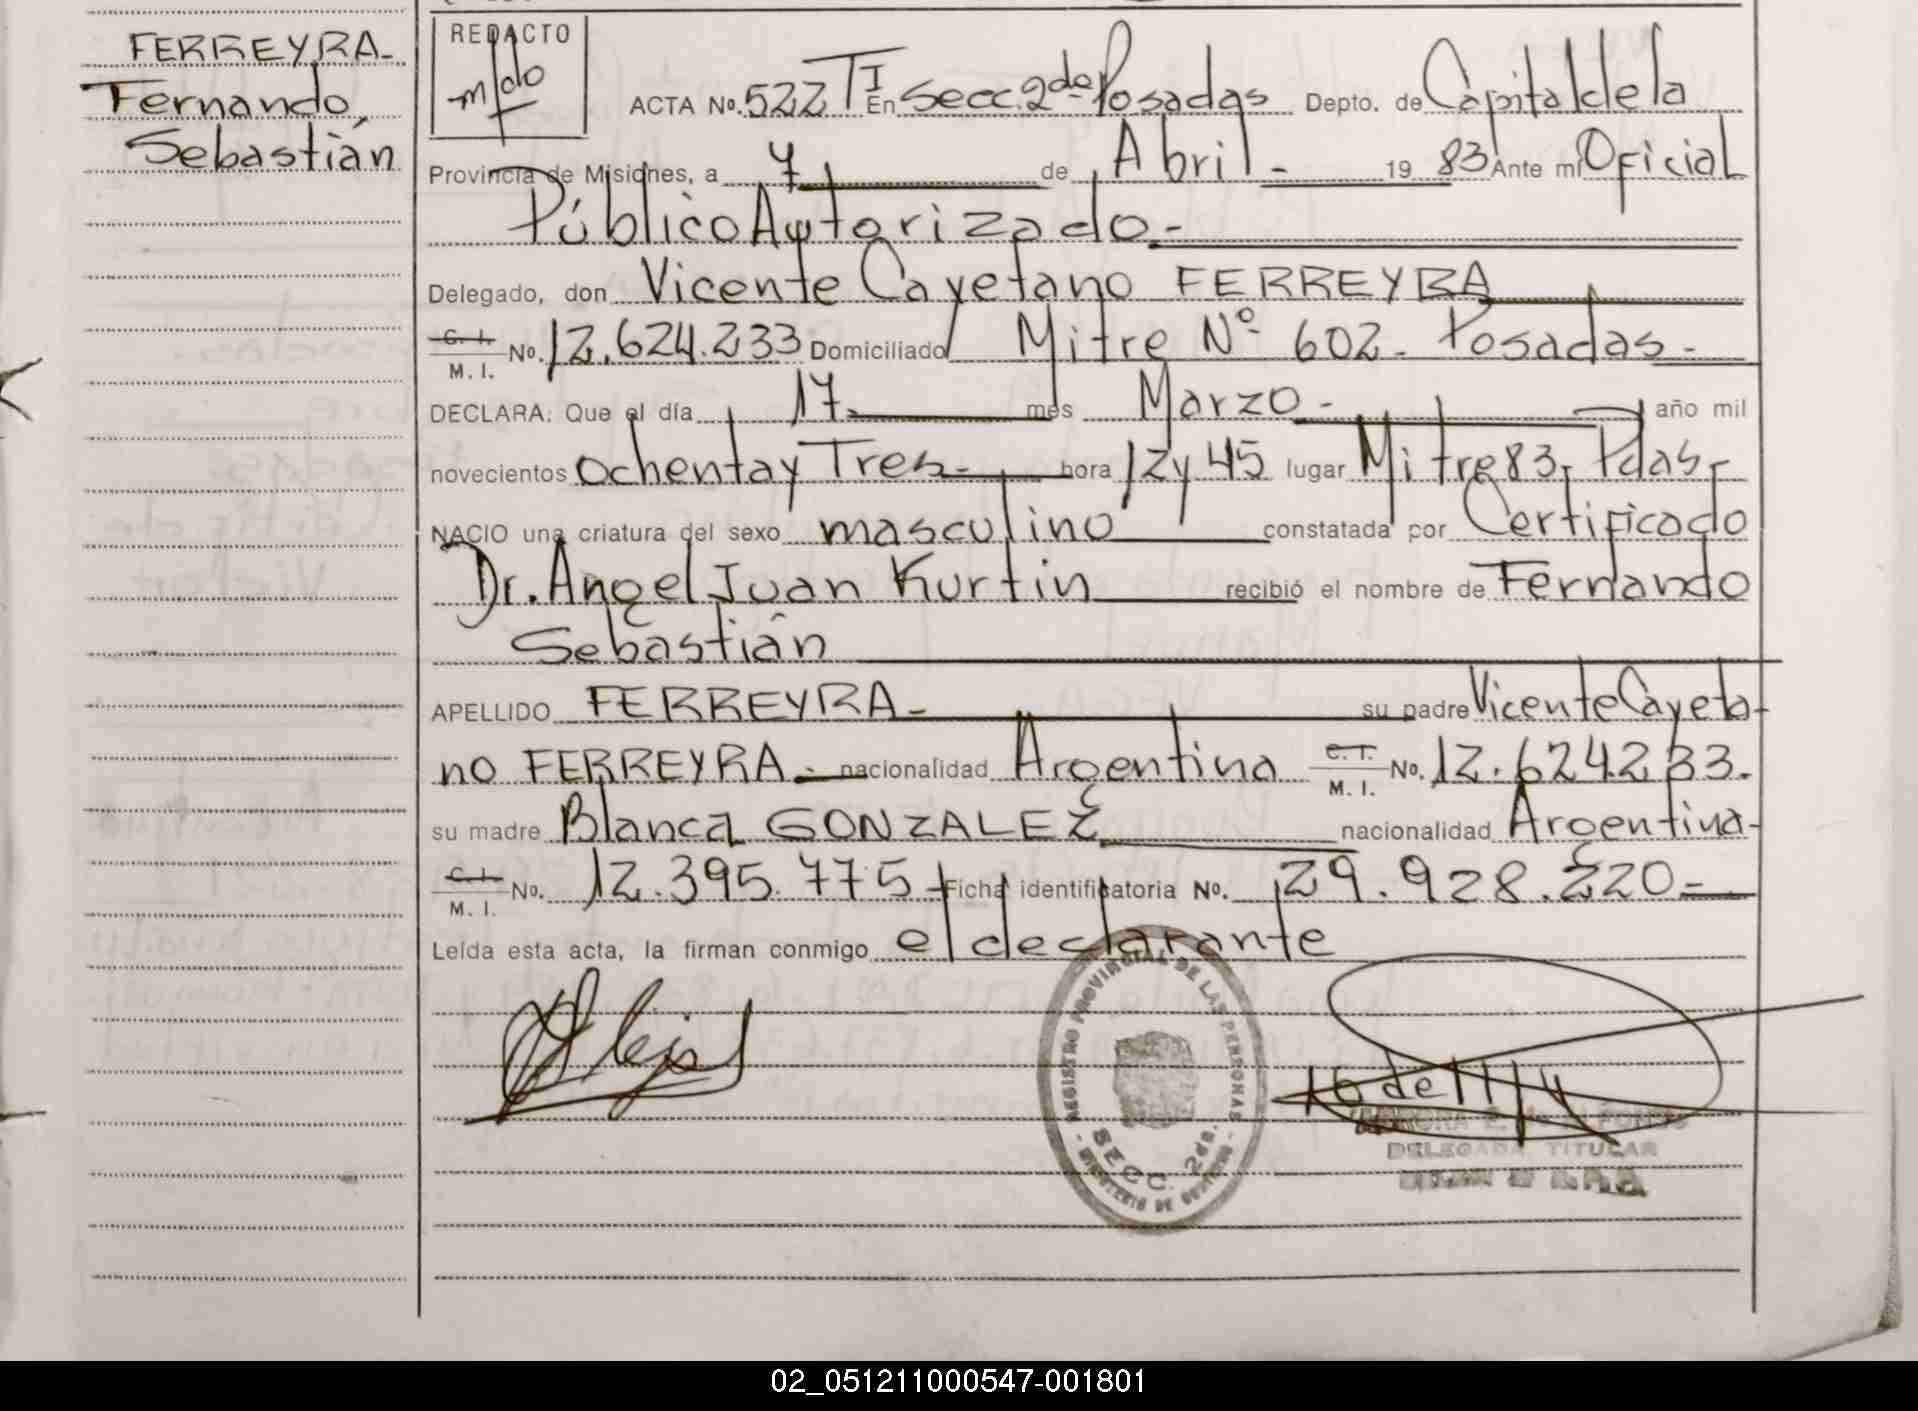 FERREYRA-
Fernando
Sebastián
REDACTO
ACTA No. 522 TI En Secc. 2da Posadas Depto. de Capital de la
Provincia de Misiones, a 7 de Abril - 19 83 Ante mi Oficial
Público Autorizado -
Delegado, don Vicente Cayetano FERREYRA
C. I.
M. I. No. 12.624.233 Domiciliado Mitre Nº 602 - Posadas -
DECLARA: Que el día 17 mes Marzo - año mil
novecientos ochenta y Tres - hora 12 y 45 lugar Mitre 83, Pdas,-
NACIO una criatura del sexo masculino constatada por Certificado
Dr. Angel Juan Kurtin recibió el nombre de Fernando
Sebastián
APELLIDO FERREYRA - su padre Vicente Cayeta-
no FERREYRA.- nacionalidad Argentina C. I.
M. I. No. 12.624.233.
su madre Blanca GONZALEZ nacionalidad Argentina -
C. I.
M. I. No. 12.395.775 - Ficha identificatoria No. 29.928.220 -
Leída esta acta, la firman conmigo el declarante
REGISTRO PROVINCIAL DE LAS PERSONAS
SECC. 2da.
- MINISTERIO DE GOBIERNO -
DELEGADA TITULAR
02_051211000547-001801